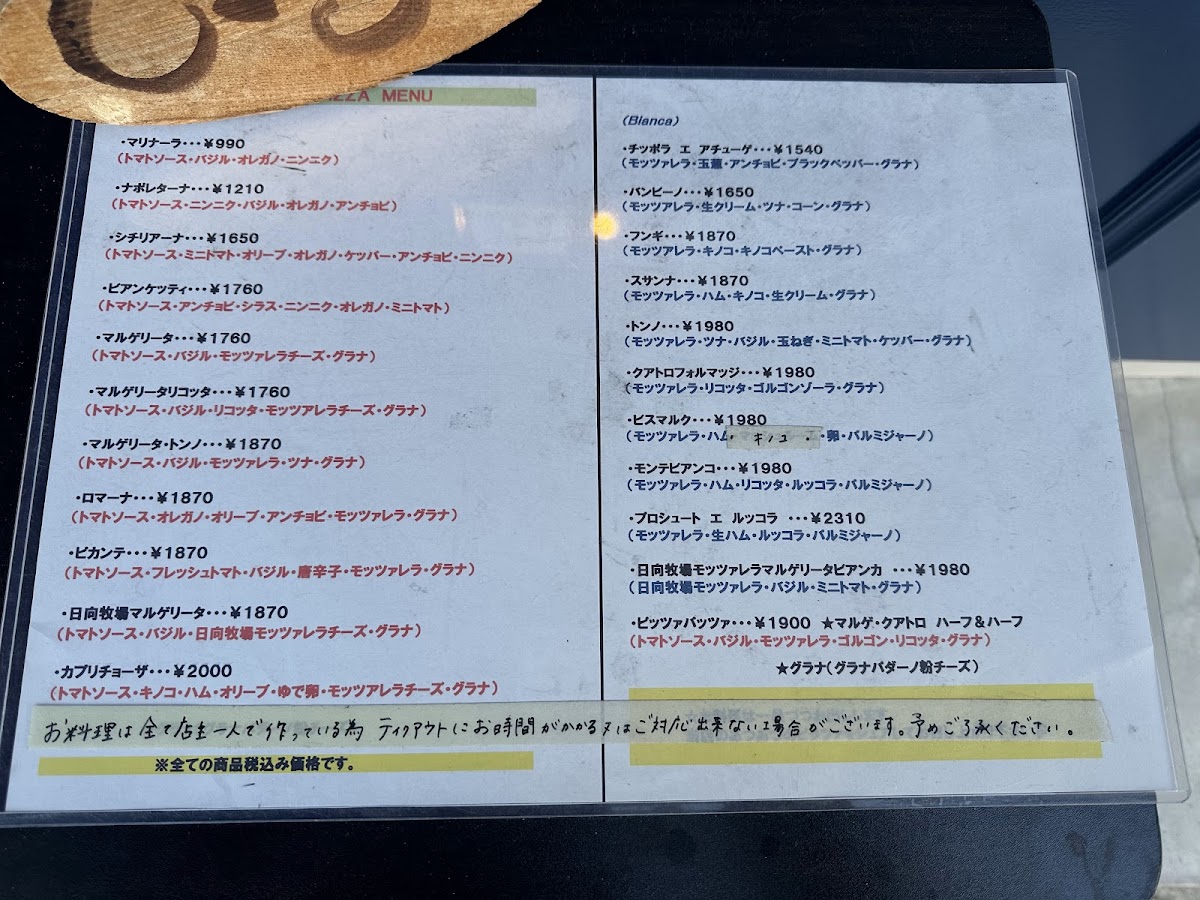 PIZZA MENU
・マリナーラ・・・¥990
(トマトソース・バジル・オレガノ・ニンニク)
・ナポレターナ・・・¥1210
(トマトソース・ニンニク・バジル・オレガノ・アンチョビ)
・シチリアーナ・・・¥1650
(トマトソース・ミニトマト・オリーブ・オレガノ・ケッパー・アンチョビ・ニンニク)
・ビアンケッティ・・・¥1760
(トマトソース・アンチョビ・シラス・ニンニク・オレガノ・ミニトマト)
・マルゲリータ・・・¥1760
(トマトソース・バジル・モッツァレラチーズ・グラナ)
・マルゲリータリコッタ・・・¥1760
(トマトソース・バジル・リコッタ・モッツアレラチーズ・グラナ)
・マルゲリータ・トンノ・・・¥1870
(トマトソース・バジル・モッツァレラ・ツナ・グラナ)
・ロマーナ・・・¥1870
(トマトソース・オレガノ・オリーブ・アンチョビ・モッツァレラ・グラナ)
・ピカンテ・・・¥1870
(トマトソース・フレッシュトマト・バジル・唐辛子・モッツァレラ・グラナ)
・日向牧場マルゲリータ・・・¥1870
(トマトソース・バジル・日向牧場モッツァレラチーズ・グラナ)
・カプリチョーザ・・・¥2000
(トマトソース・キノコ・ハム・オリーブ・ゆで卵・モッツアレラチーズ・グラナ)
(Bianca)
・チッポラ エ アチューゲ・・・¥1540
(モッツァレラ・玉葱・アンチョビ・ブラックペッパー・グラナ)
・バンビーノ・・・¥1650
(モッツァレラ・生クリーム・ツナ・コーン・グラナ)
・フンギ・・・¥1870
(モッツァレラ・キノコ・キノコペースト・グラナ)
・スサンナ・・・¥1870
(モッツァレラ・ハム・キノコ・生クリーム・グラナ)
・トンノ・・・¥1980
(モッツァレラ・ツナ・バジル・玉ねぎ・ミニトマト・ケッパー・グラナ)
・クアトロフォルマッジ・・・¥1980
(モッツァレラ・リコッタ・ゴルゴンゾーラ・グラナ)
・ビスマルク・・・¥1980
(モッツァレラ・ハム・キノコ・卵・パルミジャーノ)
・モンテビアンコ・・・¥1980
(モッツァレラ・ハム・リコッタ・ルッコラ・パルミジャーノ)
・プロシュート エ ルッコラ ・・・¥2310
(モッツァレラ・生ハム・ルッコラ・パルミジャーノ)
・日向牧場モッツァレラマルゲリータビアンカ ・・・¥1980
(日向牧場モッツァレラ・バジル・ミニトマト・グラナ)
・ピッツァパッツァ・・・¥1900 ★マルゲ・クアトロ ハーフ&ハーフ
(トマトソース・バジル・モッツァレラ・ゴルゴン・リコッタ・グラナ)
★グラナ(グラナパダーノ粉チーズ)
お料理は全て店主一人で作っている為 ティクアウトにお時間がかかる又はご対応出来ない場合がございます。予めご了承ください。
※全ての商品税込み価格です。